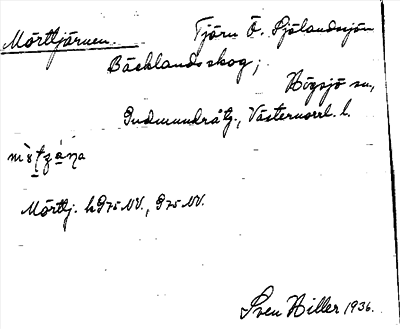 Mörttjärnen. Tjärn Ö. Sjölandssjön
Bäcklandsskog;
Högsjö sn,
Gudmundrå tg., Västernorrl. l.
Mörttj. h975 NV., 975 NV.
Sven Hiller 1936.